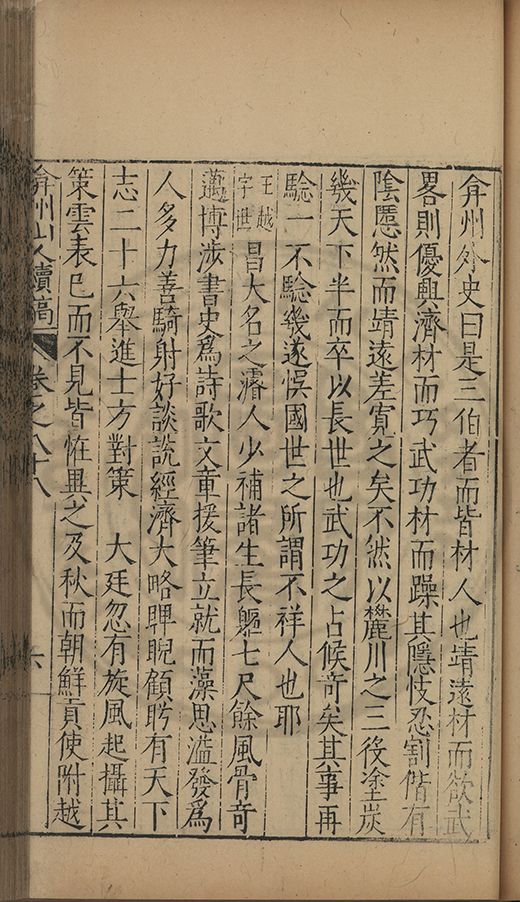 弇州外史曰是三伯者而皆材人也靖遠材而欲武
畧則優興濟材而巧武功材而躁其隱忮忍割偕有
陰慝然而靖遠差寡之矣不然以麓川之三役塗炭
幾天下半而卒以長世也武功之占候奇矣其事再
驗一不驗幾遂悞國世之所謂不祥人也耶
王越字世昌大名之濬人少補諸生長軀七尺餘風骨奇
邁博涉書史爲詩歌文章援筆立就而藻思溢發爲
人多力善騎射好談說經濟大略睥睨顧盻有天下
志二十六舉進士方對策 大廷忽有旋風起攝其
策雲表已而不見皆恠異之及秋而朝鮮貢使附越
弇州山人續稿 卷之八十八 六